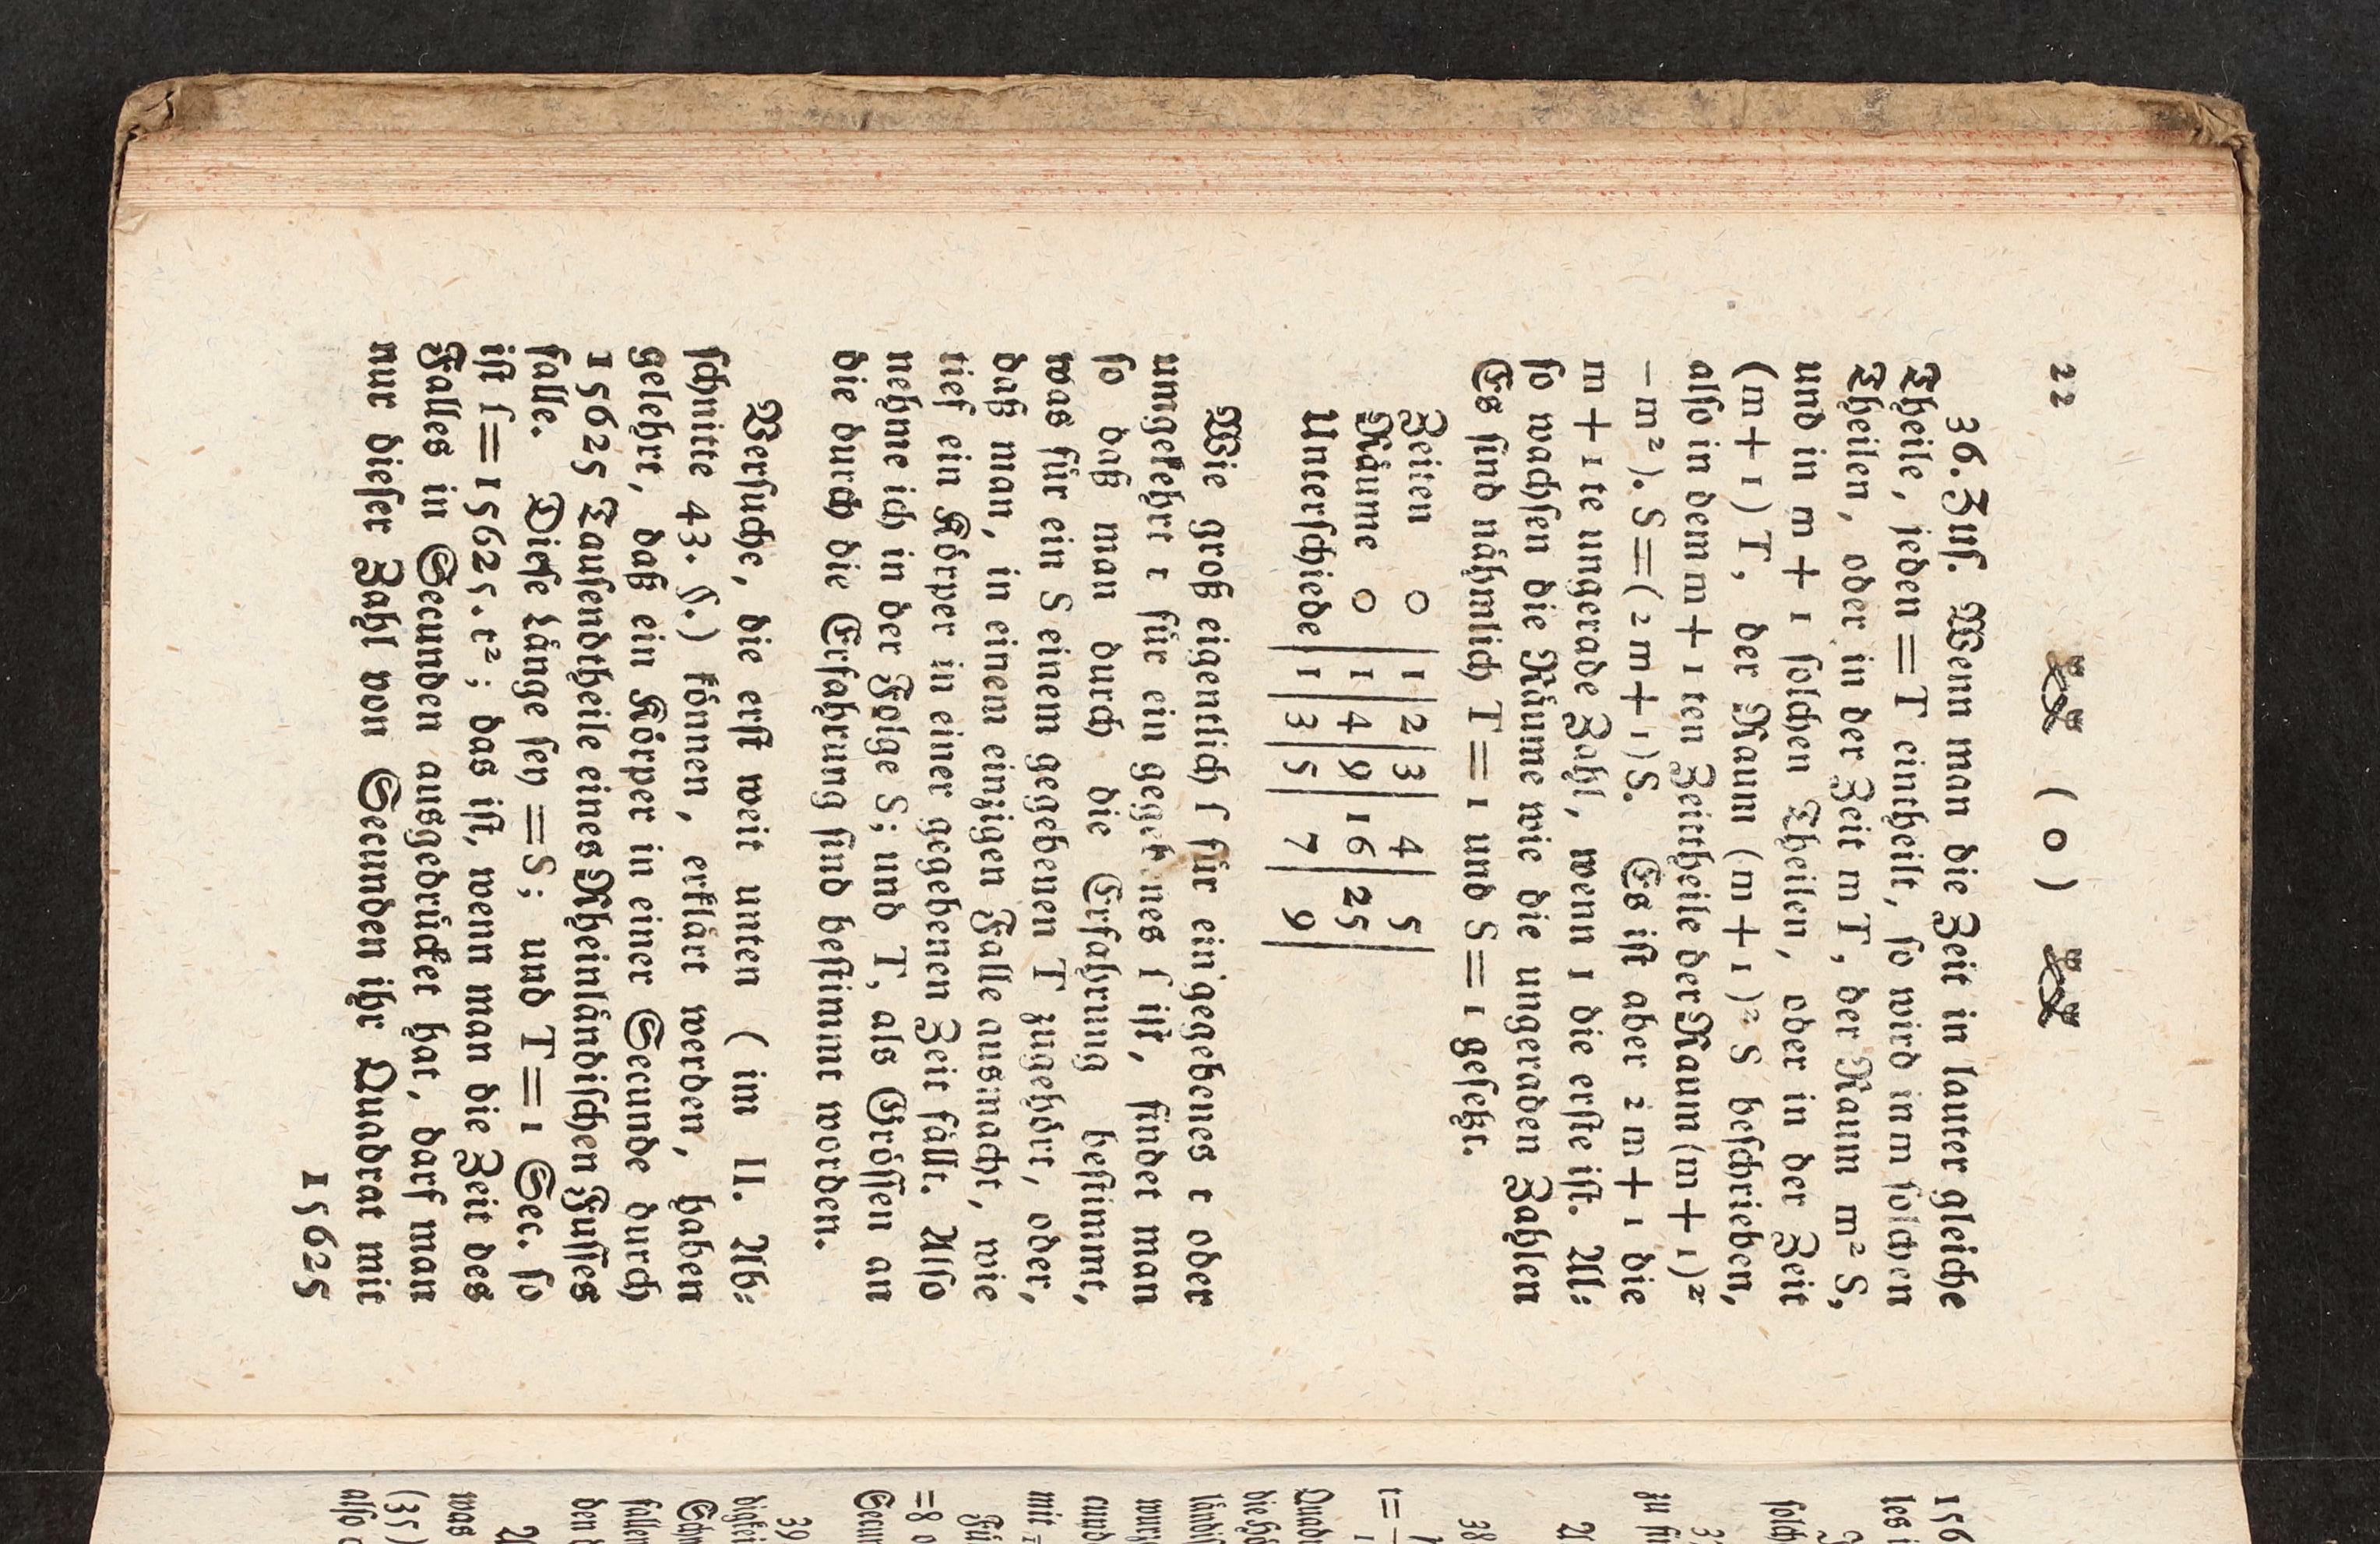 22 ( o )
36. Zuſ. Wenn man die Zeit in lauter gleiche
Theile, jeden = T eintheilt, ſo wird in m ſolchen
Theilen, oder in der Zeit m T, der Raum m² S,
und in m + 1 ſolchen Theilen, oder in der Zeit
(m + 1) T, der Raum (m + 1)² S beſchrieben,
alſo in dem m + 1 ten Zeittheile der Raum (m + 1)²
— m²). S = (2 m + 1) S. Es iſt aber 2 m + 1 die
m + 1 te ungerade Zahl, wenn 1 die erſte iſt. Al⸗
ſo wachſen die Räume wie die ungeraden Zahlen
Es ſind nähmlich T = 1 und S = 1 geſetzt.
Zeiten 0 | 1 | 2 | 3 | 4 | 5 |
Räume 0 | 1 | 4 | 9 | 16 | 25 |
Unterſchiede | 1 | 3 | 5 | 7 | 9 |
Wie groß eigentlich ſ für ein gegebenes t oder
umgekehrt t für ein gegebenes ſ iſt, findet man
ſo daß man durch die Erfahrung beſtimmt,
was für ein S einem gegebenen T zugehört, oder,
daß man, in einem einzigen Falle ausmacht, wie
tief ein Körper in einer gegebenen Zeit fällt. Alſo
nehme ich in der Folge S; und T, als Gröſſen an
die durch die Erfahrung ſind beſtimmt worden.
Verſuche, die erſt weit unten (im II. Ab⸗
ſchnitte 43. §.) können, erklärt werden, haben
gelehrt, daß ein Körper in einer Secunde durch
15625 Tauſendtheile eines Rheinländiſchen Fuſſes
falle. Dieſe Länge ſey = S; und T = 1 Sec. ſo
iſt ſ = 15625. t²; das iſt, wenn man die Zeit des
Falles in Secunden ausgedrücket hat, darf man
nur dieſer Zahl von Secunden ihr Quadrat mit
15625